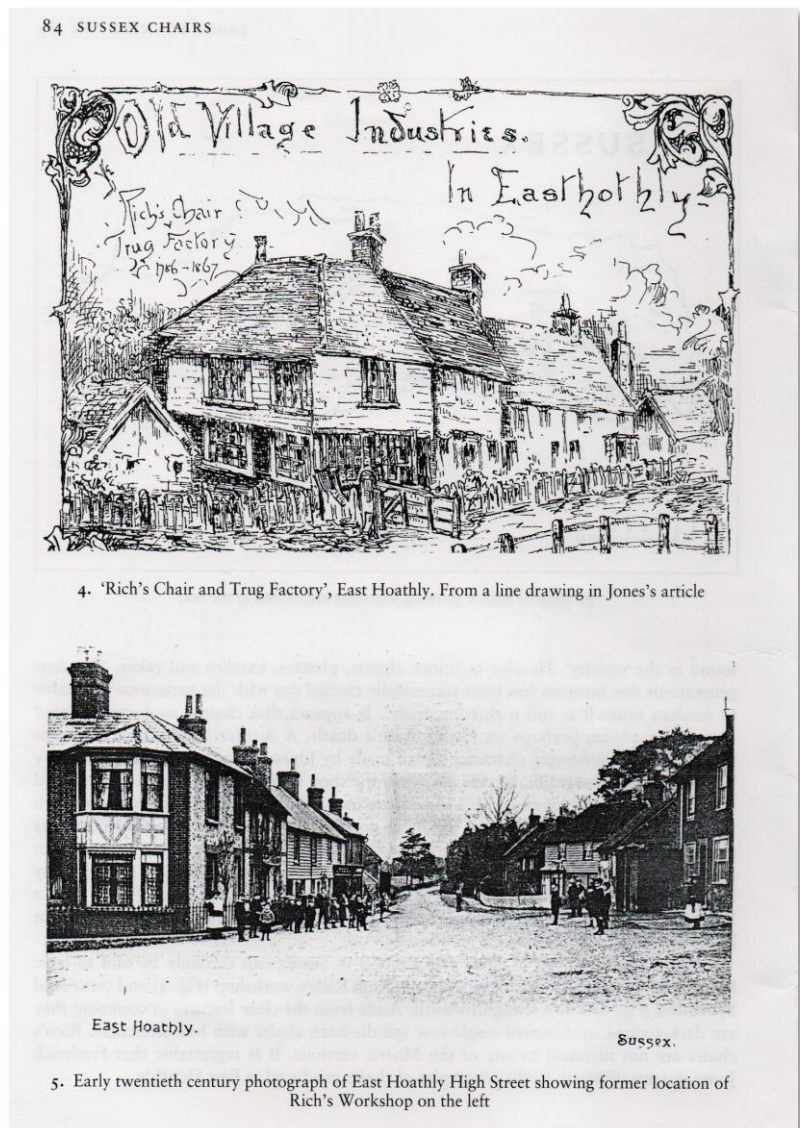 84 SUSSEX CHAIRS
Old Village Industries.
In Easthothly
Rich's Chair
Trug Factory
1786-1867
4. ‘Rich’s Chair and Trug Factory’, East Hoathly. From a line drawing in Jones’s article
East Hoathly.
Sussex.
5. Early twentieth century photograph of East Hoathly High Street showing former location of
Rich’s Workshop on the left